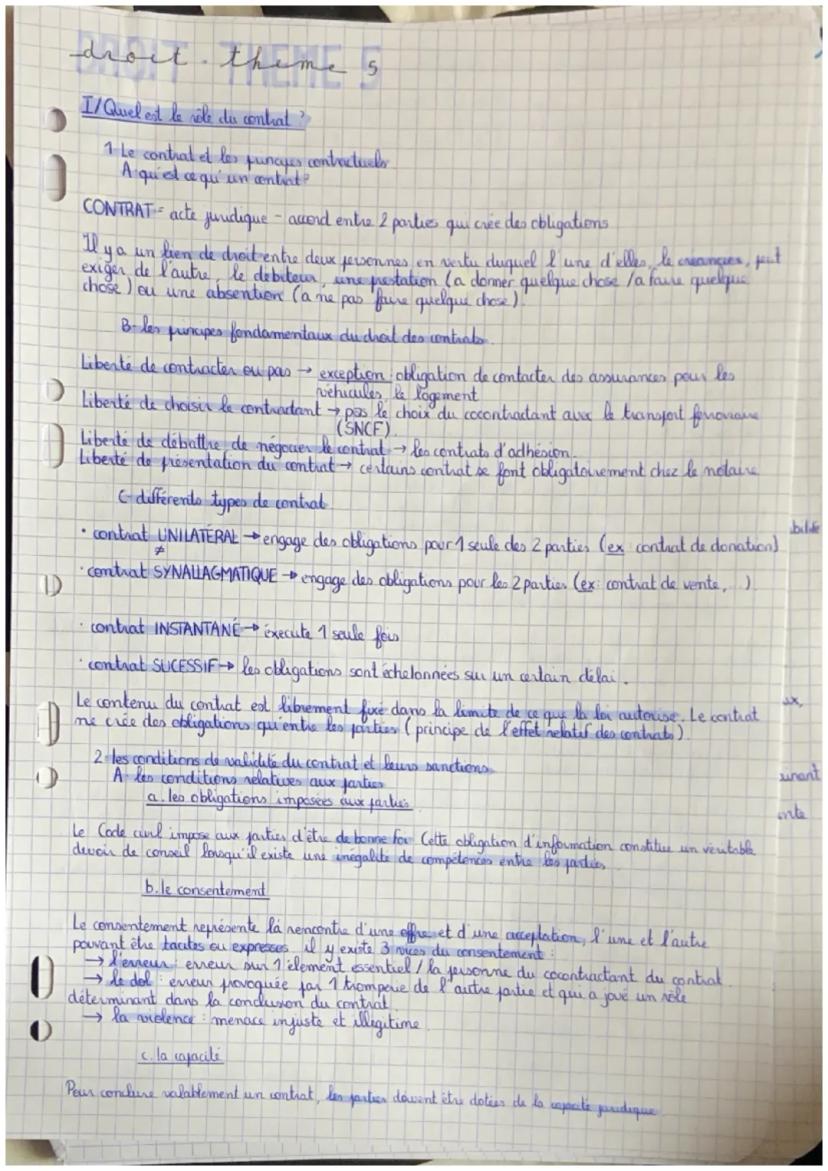 droit. theme 5
I/ Quel est le rôle du contrat ?
1 Le contrat et les principes contractuels
A qu'est ce qu'un contrat ?
CONTRAT = acte juridique - accord entre 2 parties qui crée des obligations
Il y a un lien de droit entre deux personnes en vertu duquel l'une d'elles, le créancier, peut
exiger de l'autre, le débiteur, une prestation (a donner quelque chose / a faire quelque
chose) ou une absention (a ne pas faire quelque chose).
B- les principes fondamentaux du droit des contrats.
Liberté de contracter ou pas → exception : obligation de contacter des assurances pour les
véhicules, le logement
Liberté de choisir le contractant → pas le choix du cocontractant avec le transport ferroviaire
(SNCF).
Liberté de débattre de négocier le contrat → les contrats d'adhésion.
Liberté de présentation du contrat → certains contrat se font obligatoirement chez le notaire
C- différents types de contrat
• contrat UNILATÉRAL → engage des obligations pour 1 seule des 2 parties (ex contrat de donation)
≠
• contrat SYNALLAGMATIQUE → engage des obligations pour les 2 parties (ex: contrat de vente, ).
• contrat INSTANTANÉ → éxecute 1 seule fois
• contrat SUCESSIF → les obligations sont échelonnées sur un certain délai.
Le contenu du contrat est librement fixé dans la limite de ce que la loi autorise. Le contrat
ne crée des obligations qu'entre les parties (principe de l'effet relatif des contrats).
2 les conditions de validité du contrat et leurs sanctions
A- les conditions relatives aux parties
a. les obligations imposées aux parties
Le Code civil impose aux parties d'être de bonne foi Cette obligation d'information constitue un véritable
devoir de conseil lorsqu'il existe une inégalité de compétences entre les parties.
b. le consentement
Le consentement représente la rencontre d'une offre et d'une acceptation, l'une et l'autre
pouvant être tacites ou expresses il y existe 3 vices du consentement :
→ l'erreur : erreur sur 1 élement essentiel / la personne du cocontractant du contrat.
→ le dol : erreur provoquée par 1 tromperie de l'autre partie et qui a joué un rôle
déterminant dans la conclusion du contrat
→ la violence : menace injuste et illégitime
c. la capacité
Pour conclure valablement un contrat, les parties doivent être dotées de la capacité juridique